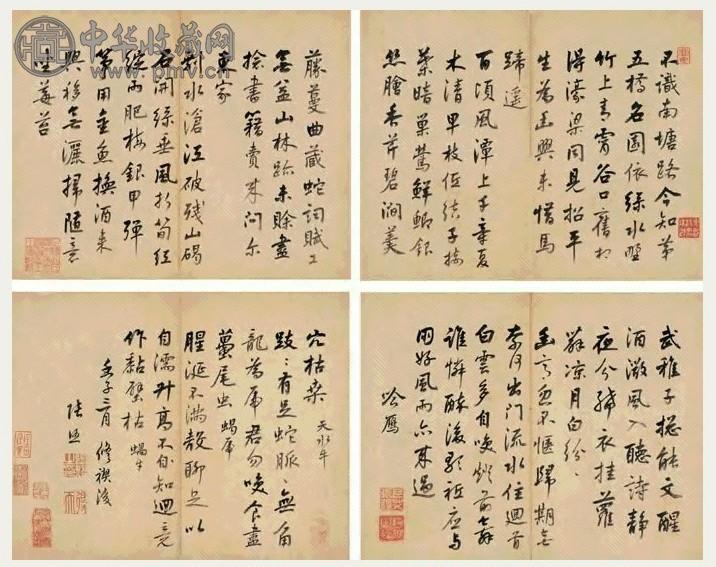 中华收藏网
www.pmv.cn
不識南塘路今知第
五橋名園依綠水野
竹上青霄谷口舊相
得濠梁同見招平
生為幽興未惜馬
蹄遙
百頃風潭上千章夏
木清卑枝低結子接
葉暗巢鶯鮮鯽銀
絲膾香芹碧澗羹
藤蔓曲藏蛇詞賦工
無益山林跡未賒盡
捻書籍賣來問爾
東家
剩水滄江破殘山碣
石開綠垂風折筍紅
綻雨肥梅銀甲彈
箏用金魚換酒來
興移無灑掃隨意
坐莓苔
武雅子總能文醒
酒微風入聽詩靜
夜分絺衣挂蘿
薜凉月白紛〃
幽意忽不愜歸期無
奈何出門流水住迴首
白雲多自笑燈前舞
誰憐醉後歌祗應與
朋好風雨亦來過
穴枯桑 天水牛
跂〃有足蛇脈〃無角
龍為虎君勿笑食盡
蠆尾虫 蝎虎
腥涎不滿殼聊足以
自濡升高不自知迴竟
作黏壁枯 蝸牛
壬子二月修禊後